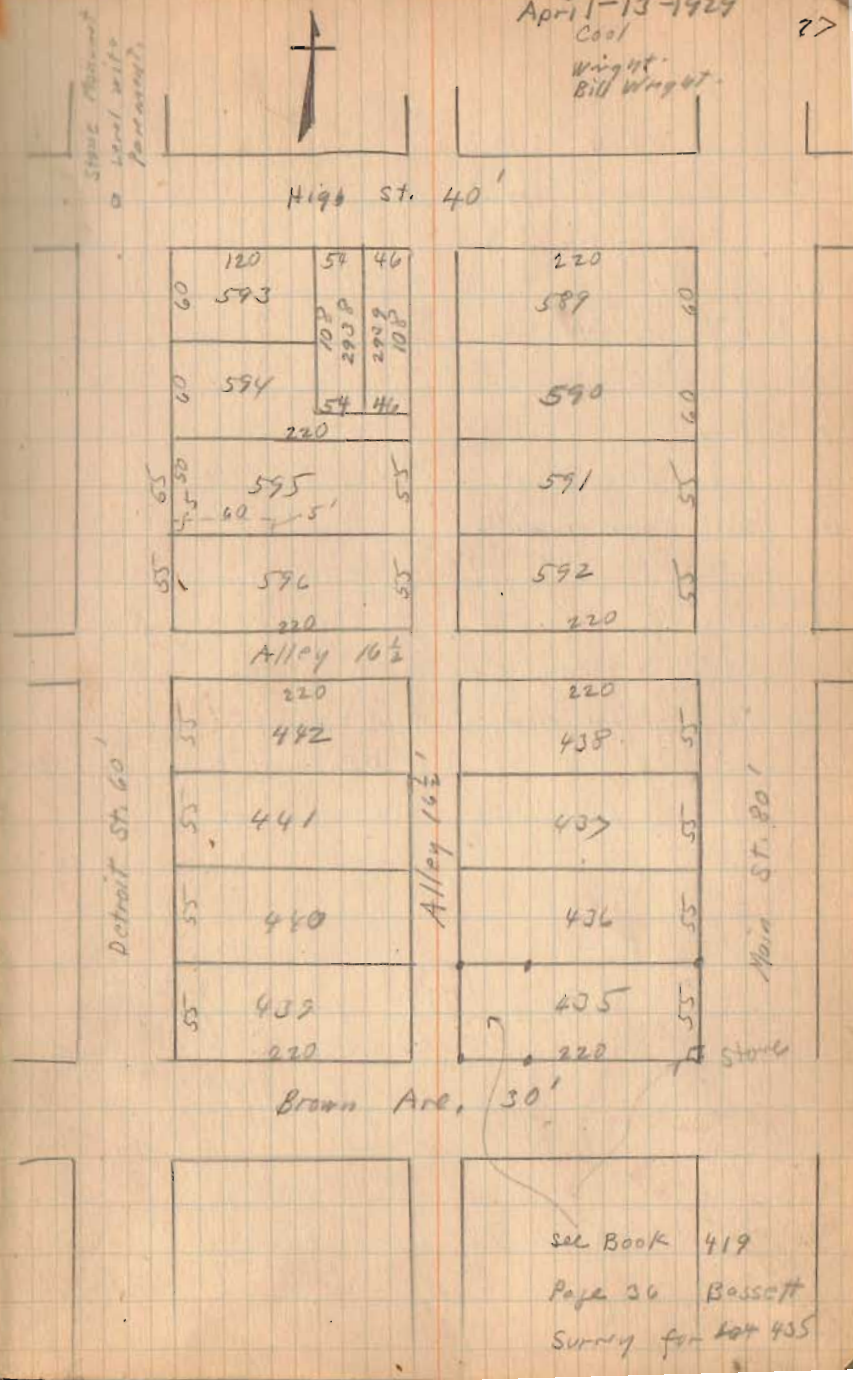 April-13-1929
27
Cool
Wright.
Bill Wright.
Stone Monument
o Level with
Pavement.
High St. 40'
120 54 46
60 593
108 2938
2939 108
60 594
54 46
220
65 50 595 55
5 60 5'
55 596 55
220
220
589 60
590 60
591 55
592 55
220
Alley 16 1/2
220
55 442
55 441
55 440
55 439
220
Detroit St. 60'
Alley 16 1/2'
220
438 55
437 55
436 55
435 55
220
Main St. 80'
Stone
Brown Ave, 30'
see Book 419
Page 36 Bassett
Survey for Lot 435